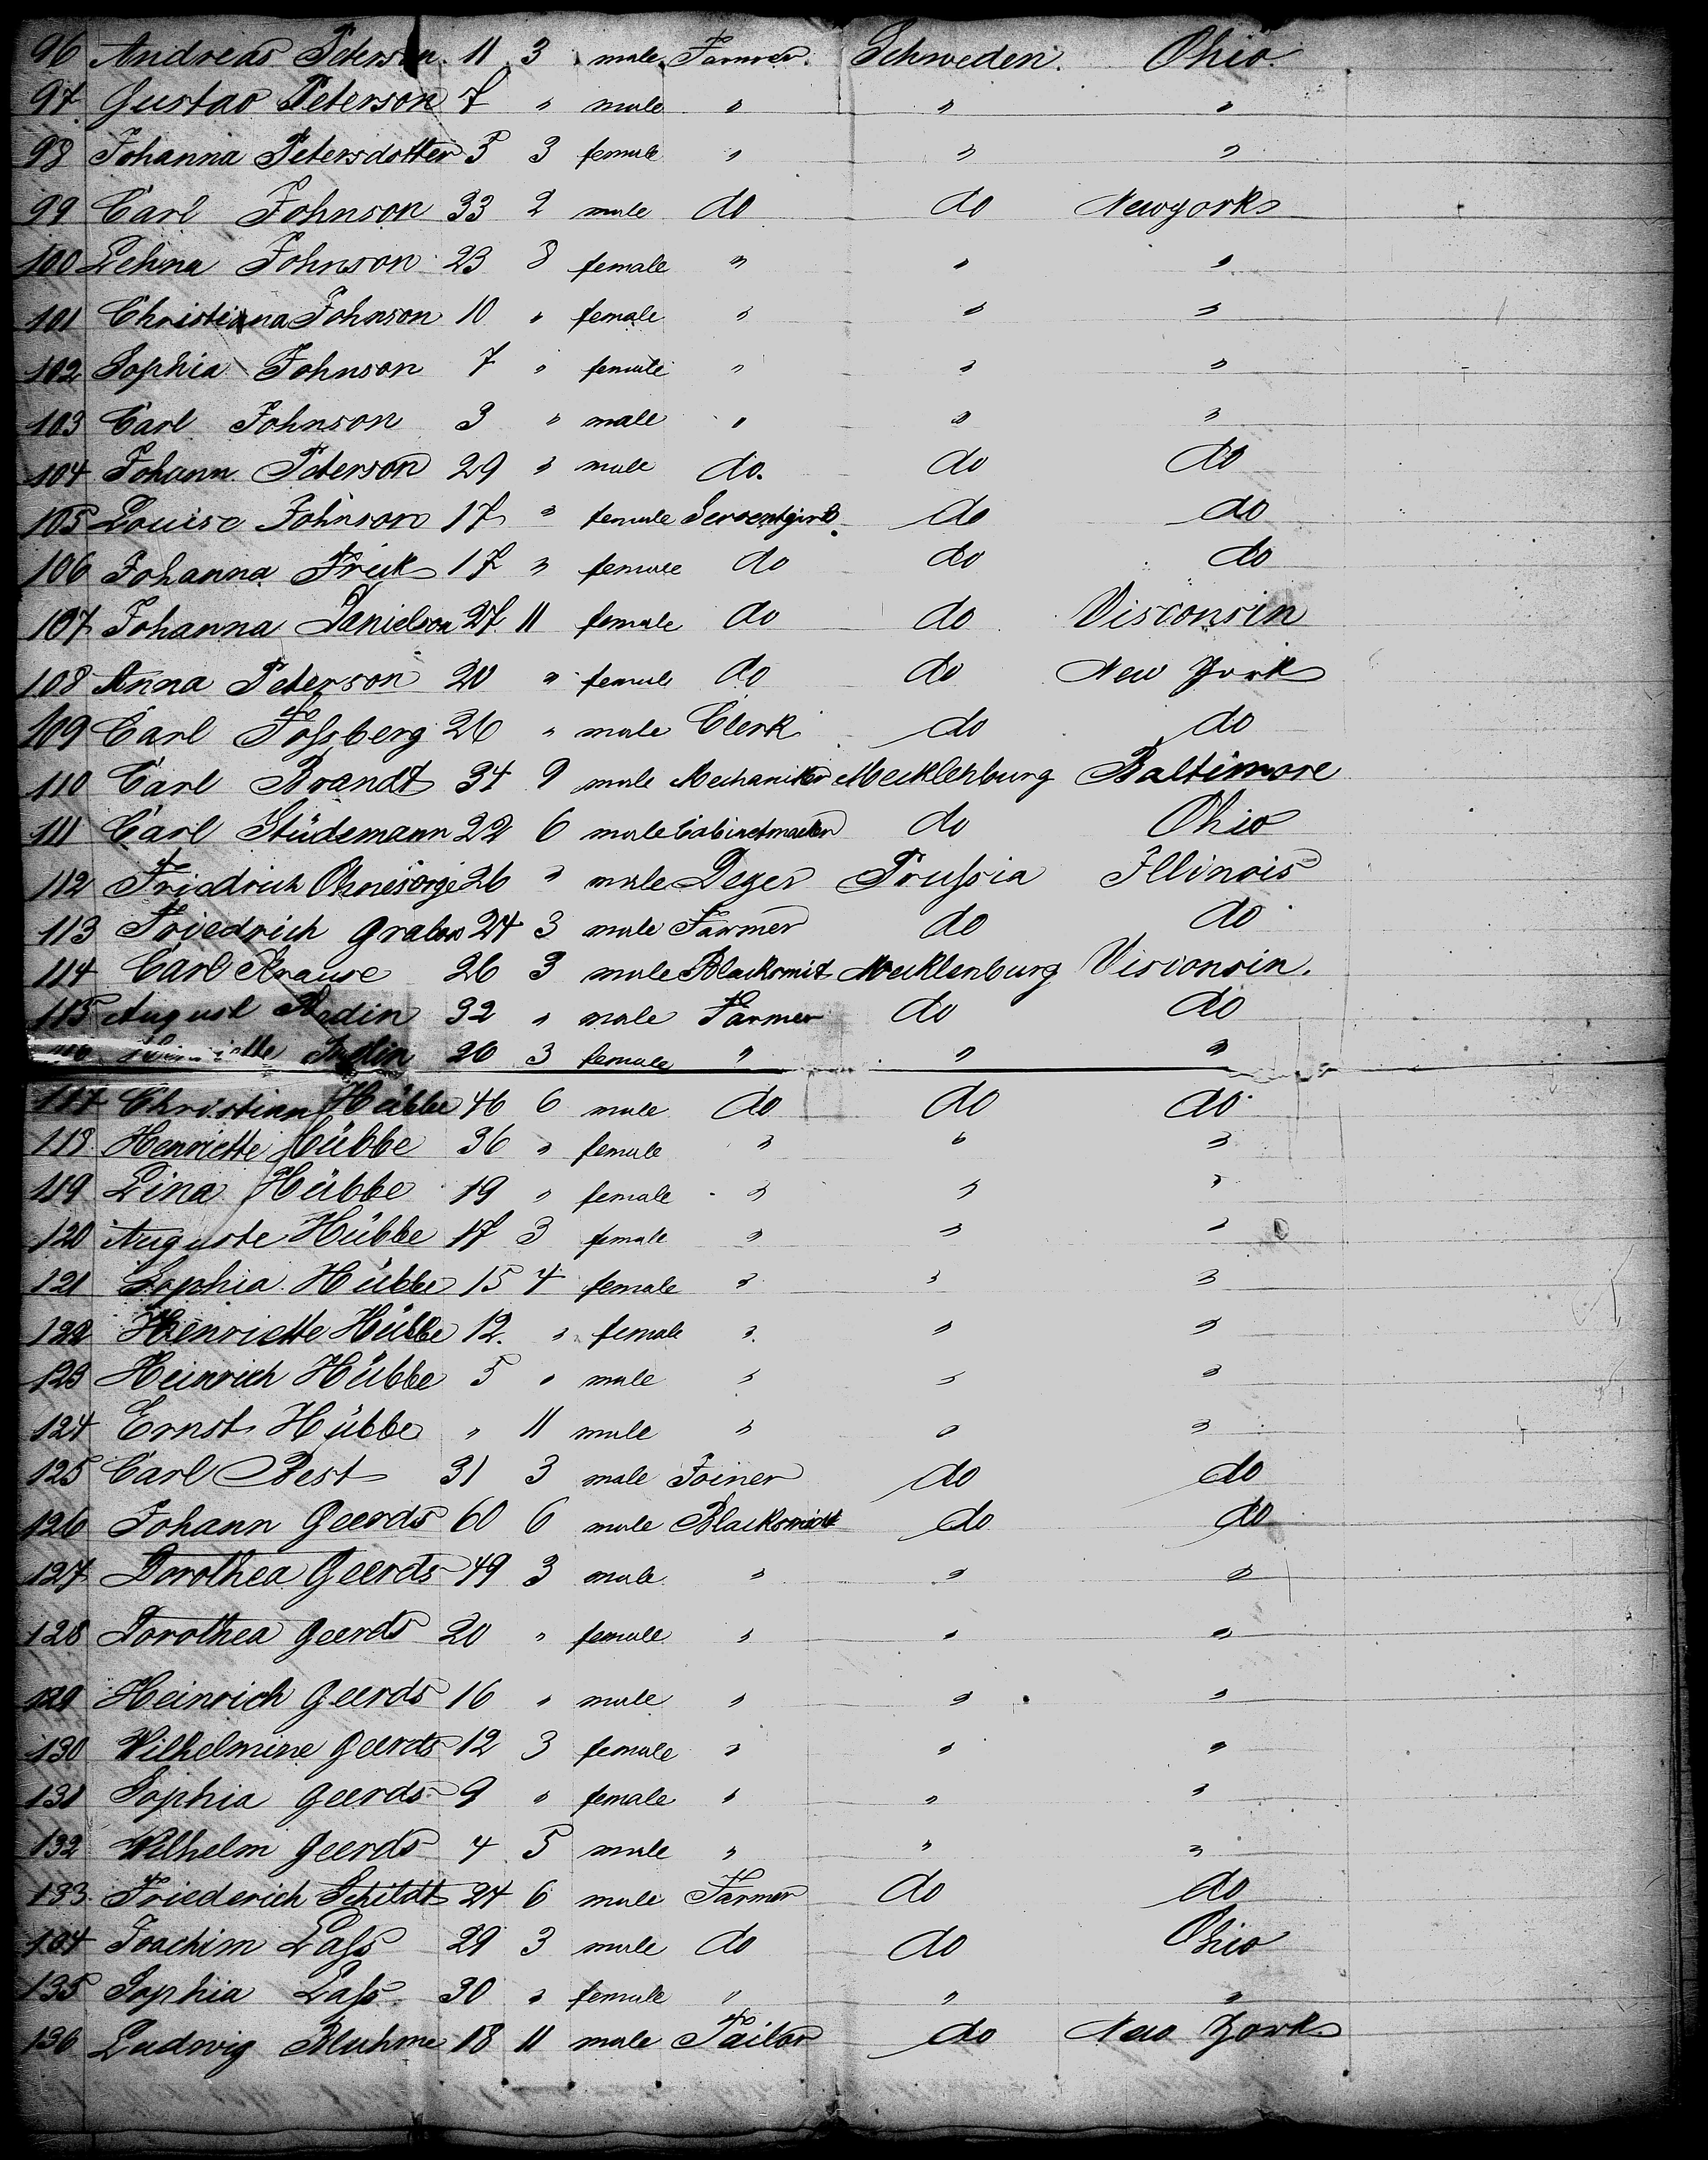 96 Andreas Peterson 11 3 male Farmer Schweden. Ohio.
97 Gustav Peterson 7 " male " " "
98 Johanna Petersdotter 5 3 female " " "
99 Carl Johnson 33 2 male do do Newyork
100 Lehna Johnson 23 8 female " " "
101 Christiana Johnson 10 " female " " "
102 Sophia Johnson 7 " female " " "
103 Carl Johnson 3 " male " " "
104 Johann Peterson 29 " male do. do do
105 Louise Johnson 17 " female Serventgirl. do do
106 Johanna Frick 17 " female do do do
107 Johanna Danielson 27 11 female do do Visconsin
108 Anna Peterson 20 " female do do New York
109 Carl Fossberg 26 " male Clerk do do
110 Carl Brandt 34 9 male Mechaniker Mecklenburg Baltimore
111 Carl Stüdemann 22 6 male Cabinetmacker do Ohio
112 Friedrich Ohnesorge 26 " male Deyer Prussia Illinois
113 Friedrich Grabow 24 3 male Farmer do do
114 Carl Krause 26 3 male Blacksmit Mecklenburg Visconsin.
115 August Redin 32 " male Farmer do do
26 3 female " " "
117 Christian Hübbe 46 6 male do do do
118 Henriette Hübbe 36 " female " " "
119 Lina Hübbe 19 " female " " "
120 Auguste Hübbe 17 3 female " " "
121 Sophia Hübbe 15 4 female " " "
122 Henriette Hübbe 12. " female " " "
123 Heinrich Hübbe 5 " male " " "
124 Ernst Hübbe " 11 male " " "
125 Carl Best 31 3 male Joiner do do
126 Johann Geerds 60 6 male Blacksmidt do do
127 Dorothea Geerds 49 3 male " " "
128 Dorothea Geerds 20 " female " " "
129 Heinrich Geerds 16 " male " " "
130 Wilhelmine Geerds 12 3 female " " "
131 Sophia Geerds 9 " female " " "
132 Wilhelm Geerds 4 5 male " " "
133 Friederich Schildt 24 6 male Farmer do do
134 Joachim Lass 29 3 male do do Ohio
135 Sophia Lass 30 " female " " "
136 Ludwig Bluhme 18 11 male Tailor do New York